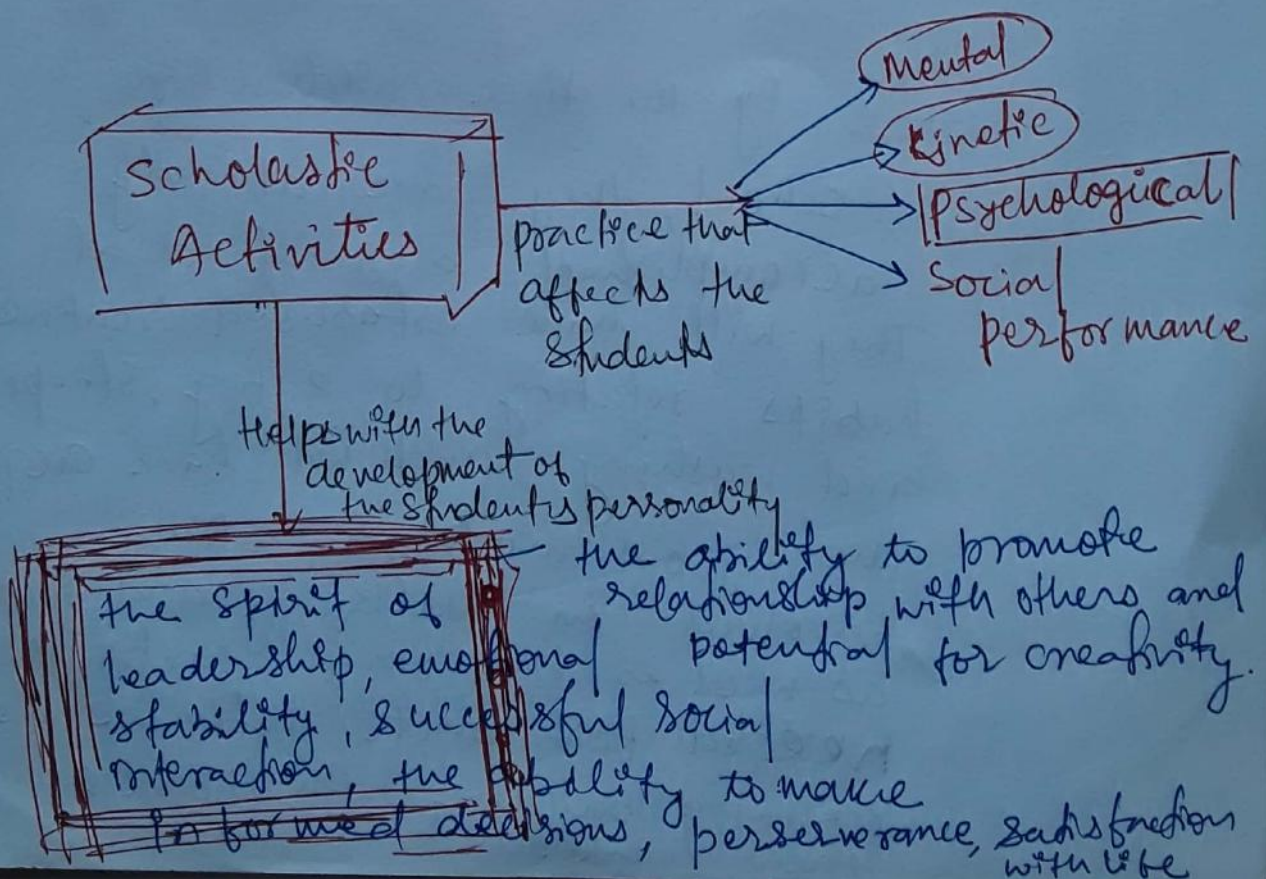 Scholastic
Activities
practice that
affects the
students
Mental
Kinetic
Psychological
Social
performance
Helps with the
development of
the student's personality
the spirit of
leadership, emotional
stability, successful social
interaction, the ability to make
informed decisions, perserverance, satisfaction
with life
the ability to promote
relationship with others and
potential for creativity.